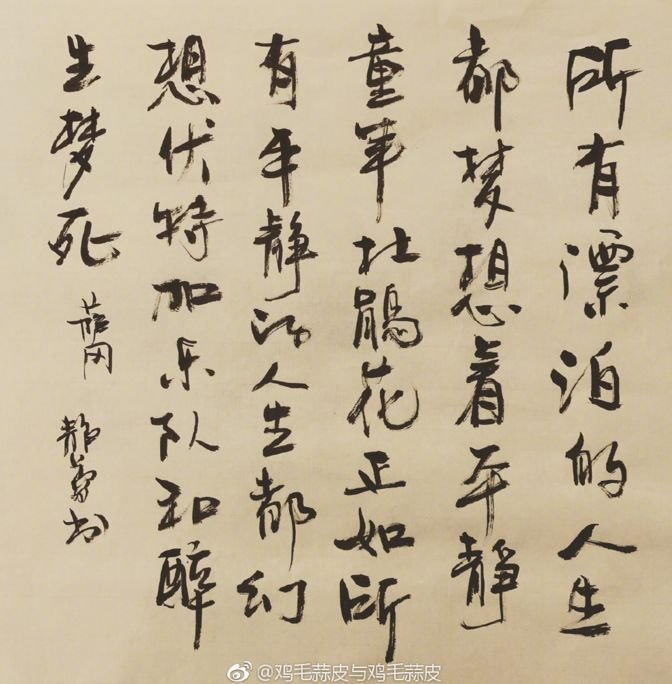 所有漂泊的人生
都梦想着平静
童年杜鹃花正如所
有平静的人生都幻
想伏特加乐队和醉
生梦死
书
@鸡毛蒜皮与鸡毛蒜皮